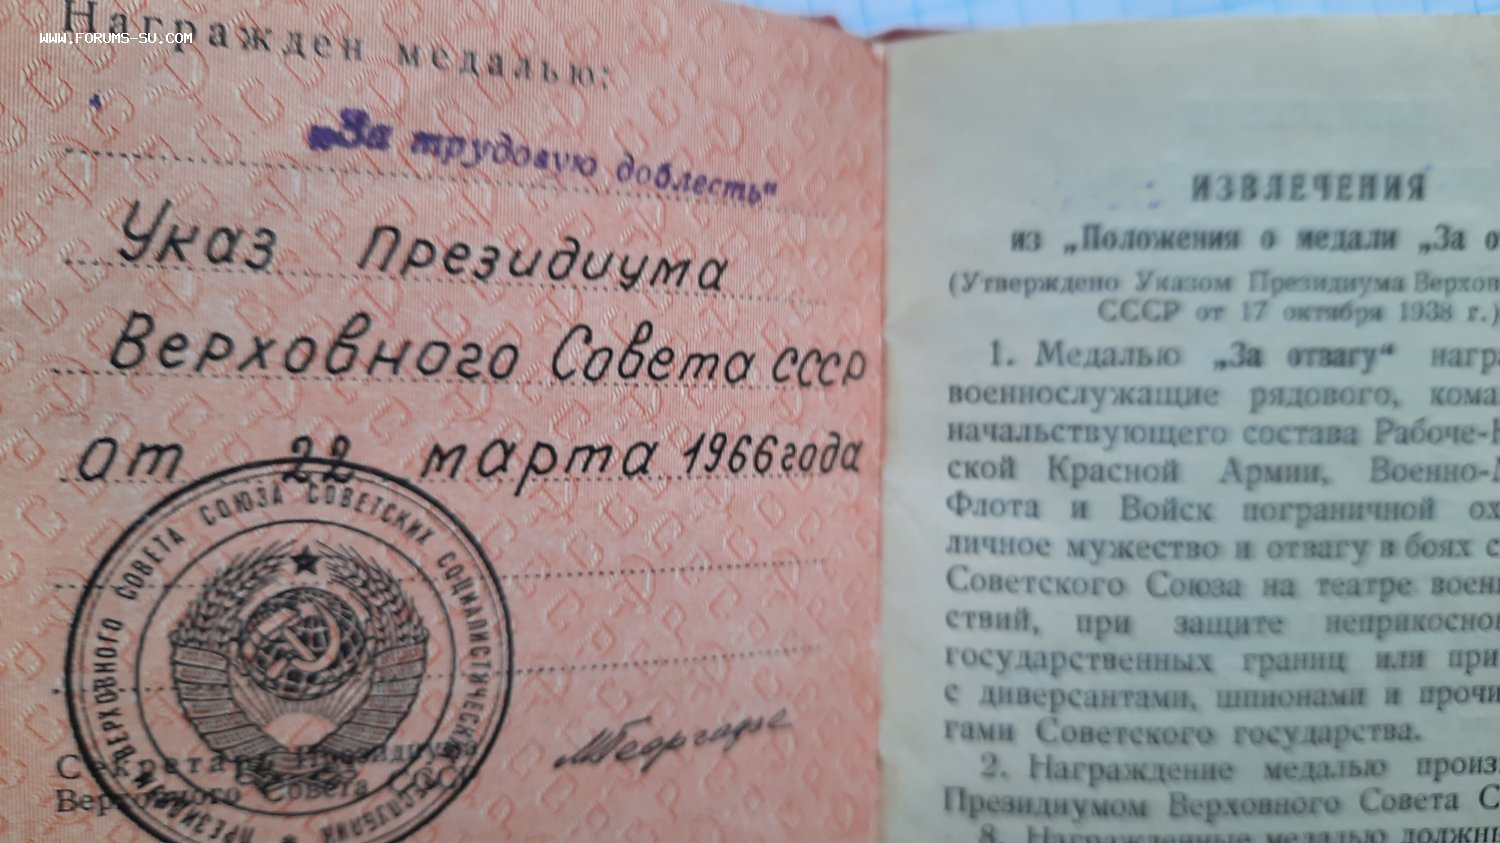 Награжден медалью:
WWW.FORUMS-SU.COM
„За трудовую доблесть“
Указ Президиума
Верховного Совета СССР
от 22 марта 1966 года
ПРЕЗИДИУМ ВЕРХОВНОГО СОВЕТА СОЮЗА СОВЕТСКИХ СОЦИАЛИСТИЧЕСКИХ РЕСПУБЛИК
Секретарь Президиума
Верховного Совета СССР
МГеоргадзе
ИЗВЛЕЧЕНИЯ
из „Положения о медали „За о
(Утверждено Указом Президиума Верхов
СССР от 17 октября 1938 г.)
1. Медалью „За отвагу“ награ
военнослужащие рядового, кома
начальствующего состава Рабоче-К
ской Красной Армии, Военно-М
Флота и Войск пограничной ох
личное мужество и отвагу в боях с
Советского Союза на театре воен
ствий, при защите неприкосно
государственных границ или при
с диверсантами, шпионами и прочи
гами Советского государства.
2. Награждение медалью произ
Президиумом Верховного Совета С
8. Награжденные медалью должн